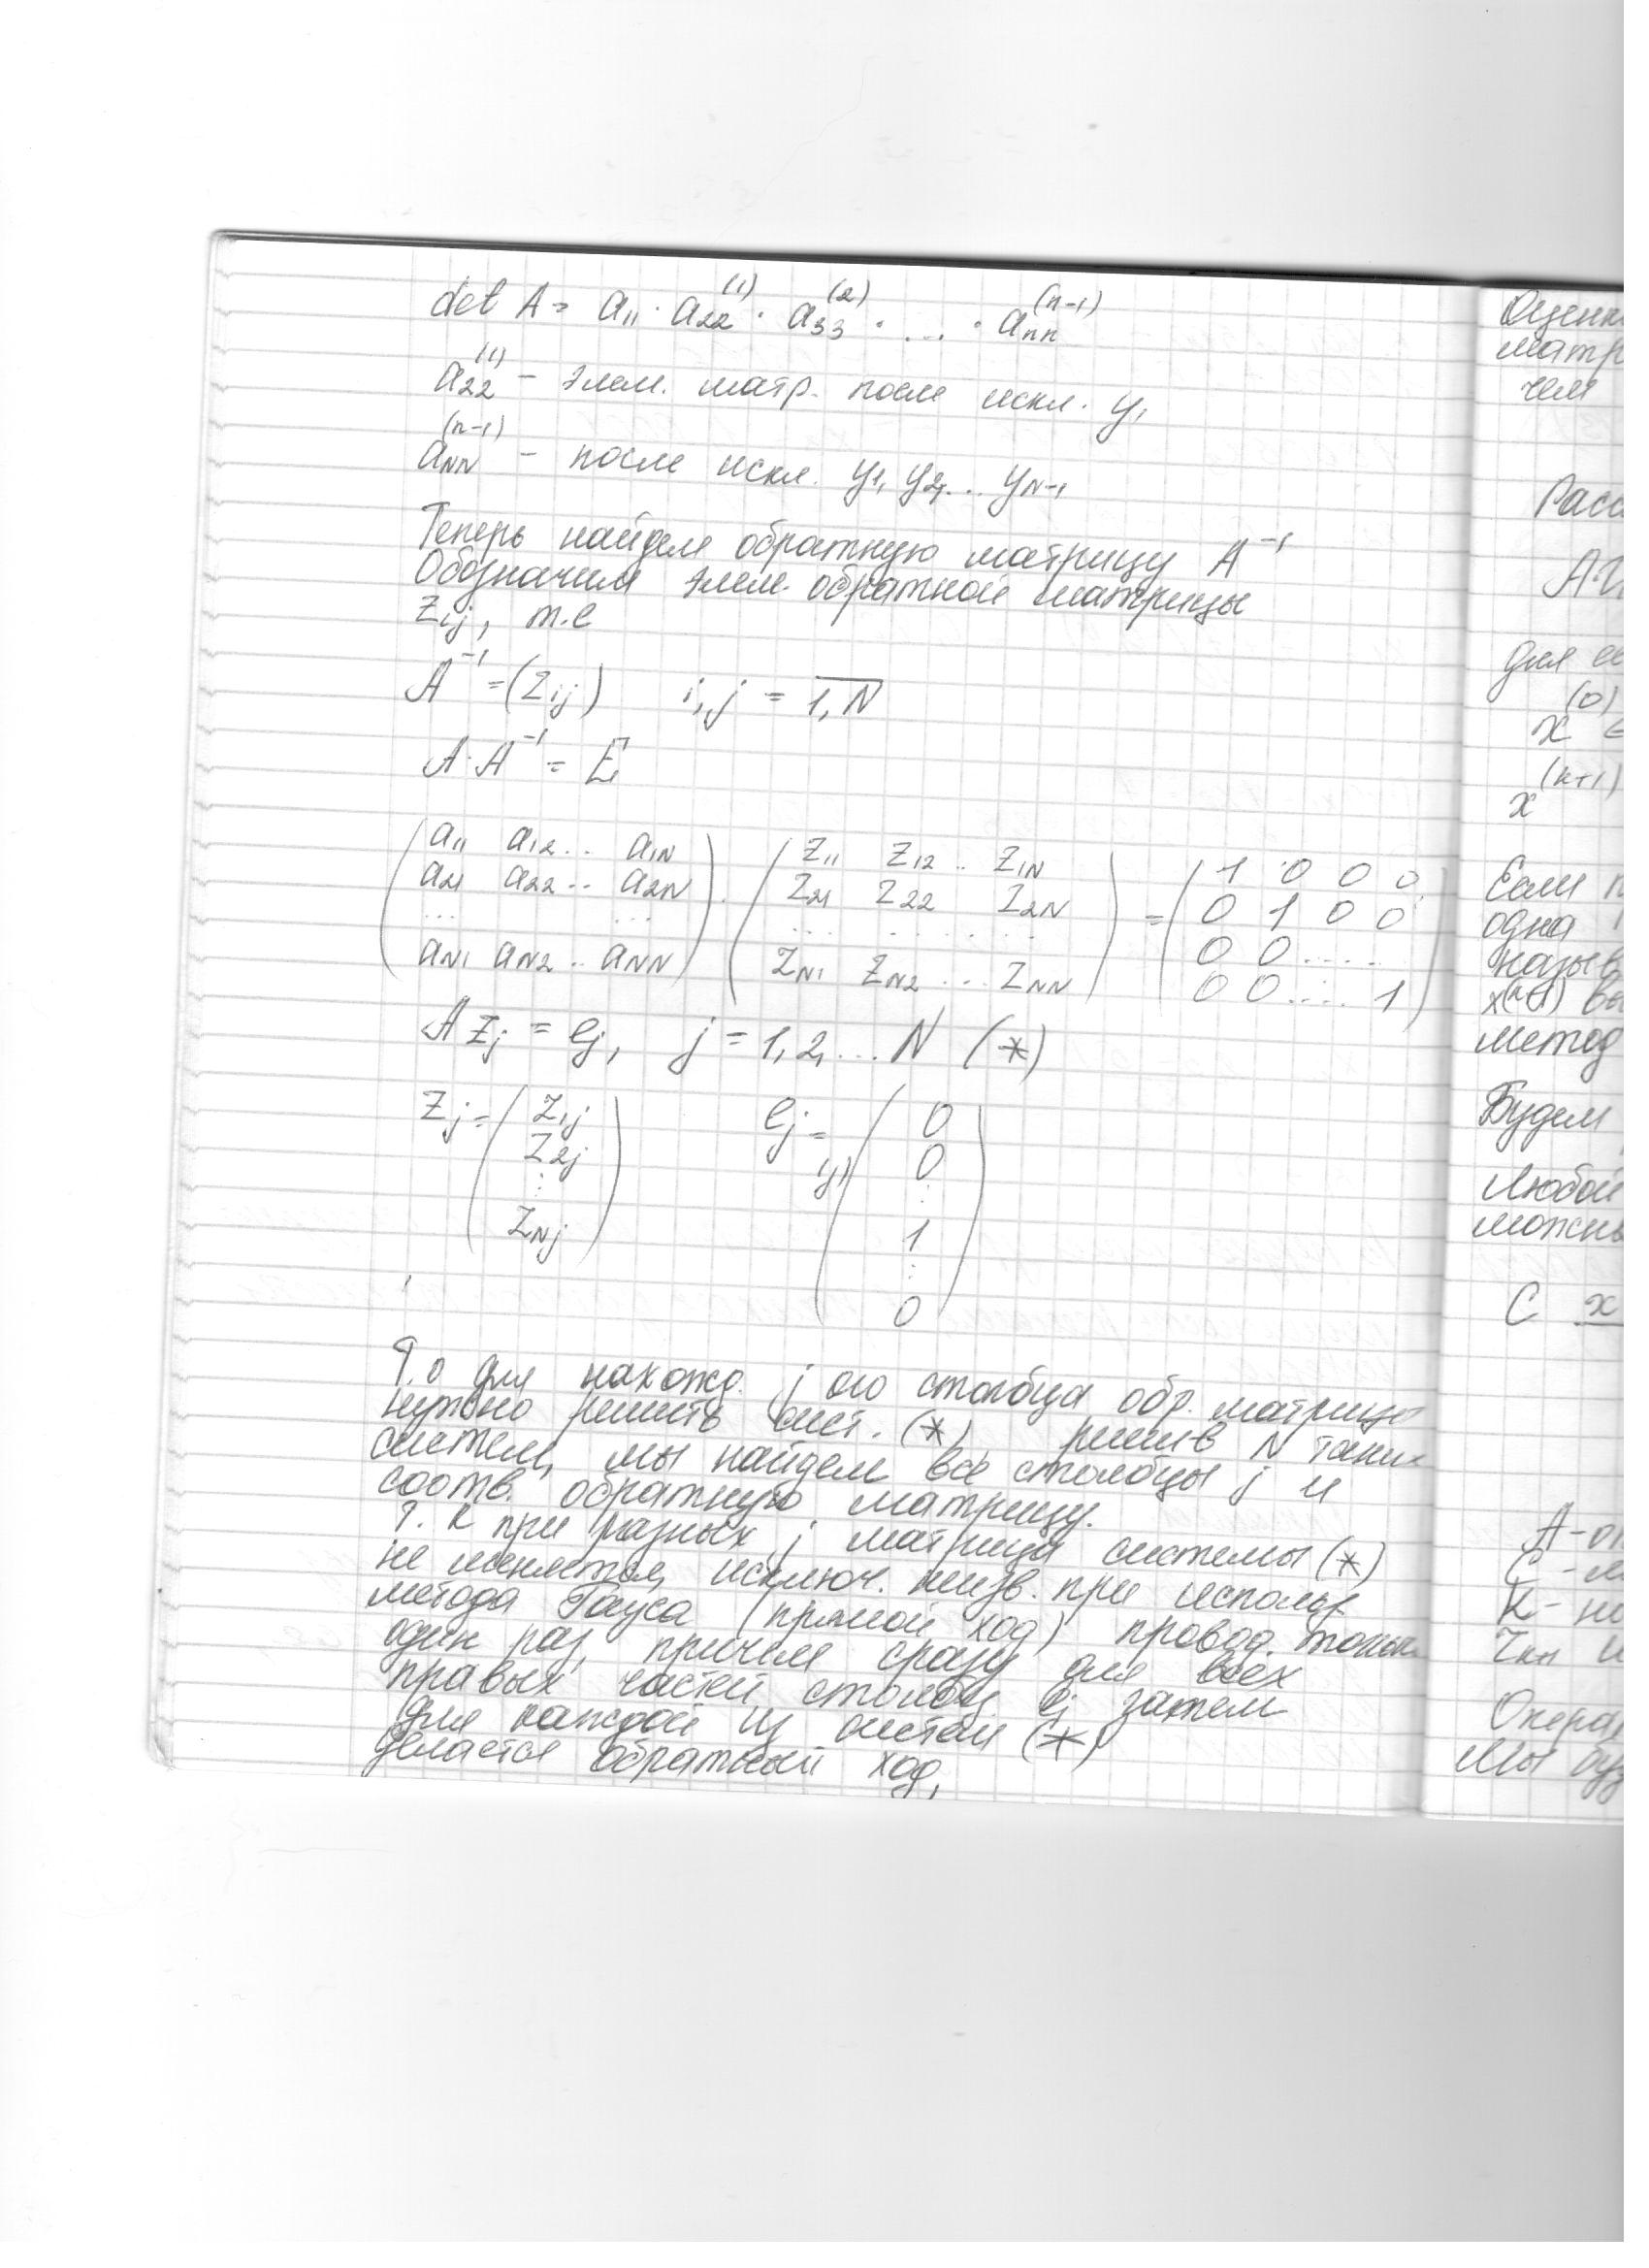 det A = a₁₁ · a₂₂⁽¹⁾ · a₃₃⁽²⁾ · ... · aₙₙ⁽ⁿ⁻¹⁾
a₂₂⁽¹⁾ – элем. матр. после искл. y₁
a_NN⁽ⁿ⁻¹⁾ – после искл. y₁, y₂, ... y_N-1
Теперь найдем обратную матрицу A⁻¹
Обозначим элем. обратной матрицы
Zij, т.е
A⁻¹ = (Zij) i, j = 1, N
A · A⁻¹ = E
( a₁₁ a₁₂ .. a₁N ) · ( Z₁₁ Z₁₂ .. Z₁N ) = ( 1 0 0 0 )
( a₂₁ a₂₂ .. a₂N ) ( Z₂₁ Z₂₂ Z₂N ) ( 0 1 0 0 )
... ... ...... ( 0 0 ..... )
( aN₁ aN₂ .. aNN ) ( ZN₁ ZN₂ ... ZNN ) ( 0 0 .... 1 )
A Zj = ej, j = 1, 2, ... N (*)
Zj = ( Z₁j ej = ( 0
Z₂j 0
⋮ ⋮
ZNj ) 1
⋮
0 )
Т.о для нахожд. j ого столбца обр. матрицы
нужно решить сист. (*), решив N таких
систем, мы найдем все столбцы j и
соотв. обратную матрицу.
Т. к при разных j матрица системы (*)
не меняется, исключ. неизв. при использ
метода Гауса (прямой ход) провод. только
один раз, причем сразу для всех
правых частей столбц ej затем
для каждой из систем (*)
делается обратный ход,
Оценк
матр
чем
Расс
A·U
для ее
x⁽⁰⁾ ∈
x⁽ᵏ⁺¹⁾
Если п
одна
назыв
метод
Будем
Любой
можно
C x
A-оп
C -м
K- но
Опера
Мы буд